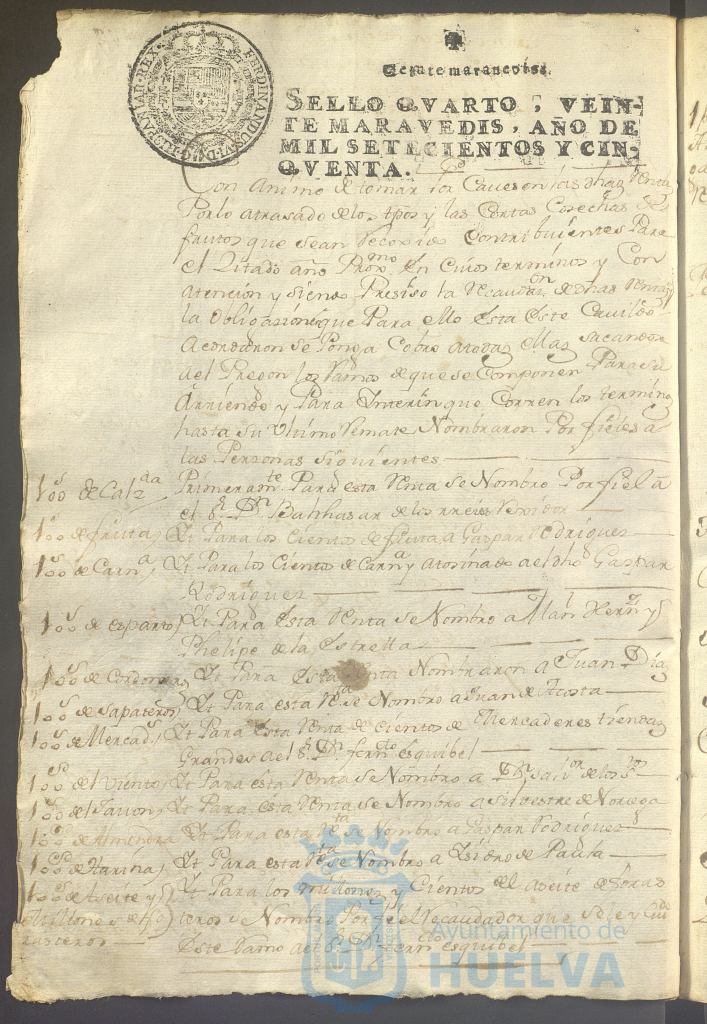 FERDINANDUS VI D G HISPANIAR REX
Veinte maravedis.
SELLO QVARTO, VEIN-
TE MARAVEDIS, AÑO DE
MIL SETECIENTOS Y CIN-
QVENTA.
Con Animo de tomar la Caveson las dhas Rentas
Por lo atrasado de los tpos y las Cortas Cosechas de
frutos que sean Recoxido Contribuientes Para
el Zitado año Proxmo En Cuios terminos y Con
atencion y siendo Presiso la Recaudon de dhas Rentas
la Obligazion que Para ello Esta Este Cavildo
Acordaron se Ponga Cobro atodas ellas sacandose
al Pregon los Ramos de que se Componen Para su
Arriendo y Para Interin que Corren los terminos
hasta su Ultimo Remate Nombraron Por fieles a
las Personas siguientes
100s de Calzda Primeramte Para esta Renta se Nombro Por fiel a
el Sr Dn Balthasar de los Reies Rexidor
100s de fruta Yt Para los Cientos de fruta a Gaspar Rodrigues
100s de Carna Yt Para los Cientos de Carn y atosinado al dho Gaspar
Rodriguez
100s de esparto Yt Para Esta Renta se Nombro a Alan Hernz y
Phelipe de la Estrella
100s de Cordovan Yt Para Esta Renta Nombraron a Juan Diaz
100s de Sapateros Yt Para esta Rta se Nombro a Juan de Acosta
100s de Mercads Yt Para Esta Renta de Cientos de Mercaderes tiendas
Grandes al Sr Dn ferndo esquibel
100s del Viento Yt Para esta Renta se Nombro a Dn Salvor de los Ros
100s del Javon Yt Para esta Renta se Nombro a Silvestre de Noriega
100s de Almendra Yt Para esta Rta se Nombro a Gaspar Rodriguez
100s de Harina Yt Para esta Rta se Nombro a Ysidro de Paula
100s de Aseite y Yt Para los millones y Cientos del Aseite de foras
Millones de fo teros se Nombro Por fiel Recaudador que sele y Cuide
rasteros Este Ramo al Sr Dn ferndo esquibel
Ayuntamiento de
HUELVA